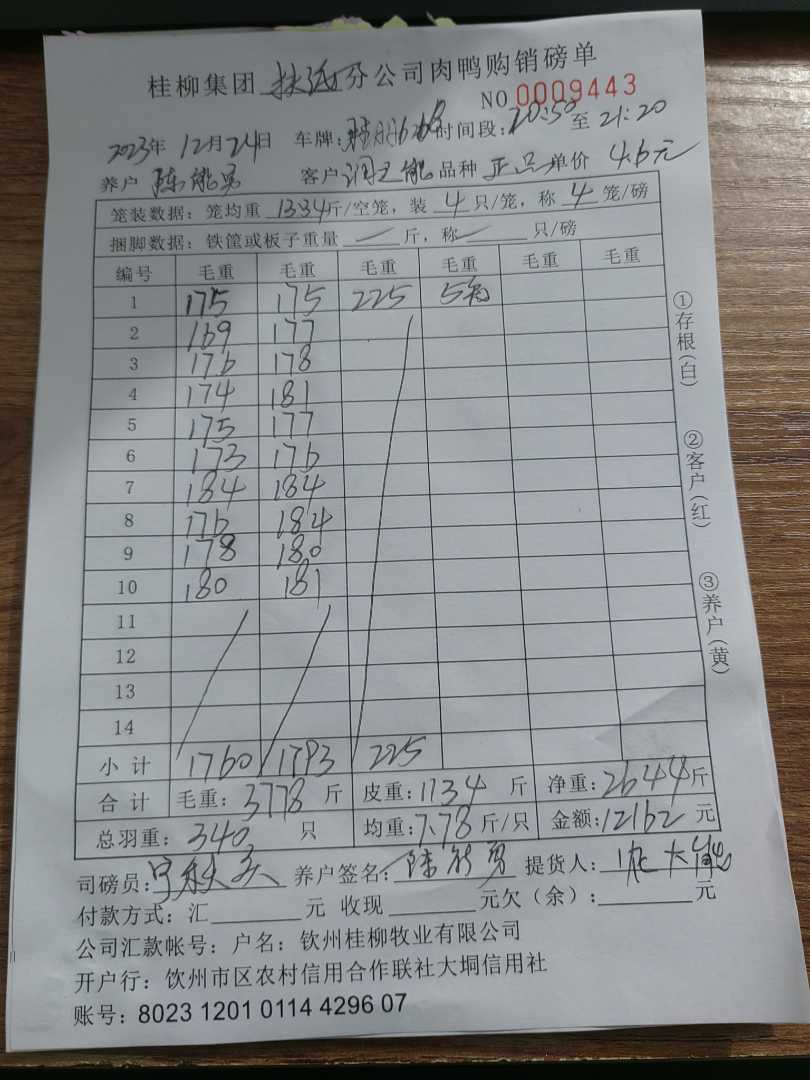 桂柳集团 扶绥 分公司肉鸭购销磅单
NO 0009443
2023年 12月24日 车牌: 时间段: 20:50 至 21:20
养户 陈能勇 客户 润之能 品种 正品 单价 4.6元
笼装数据: 笼均重 13.34斤/空笼, 装 4 只/笼, 称 4 笼/磅
捆脚数据: 铁筐或板子重量 / 斤, 称 / 只/磅
编号 毛重 毛重 毛重 毛重 毛重 毛重
1 175 175 225 5笼
2 169 177
3 176 178
4 174 181
5 175 177
6 173 176
7 184 184
8 176 184
9 178 180
10 180 181
11
12
13
14
小计 1760 1793 225
合计 毛重: 3778 斤 皮重: 1134 斤 净重: 2644斤
总羽重: 340 只 均重: 7.78 斤/只 金额: 12162 元
司磅员: 养户签名: 陈能勇 提货人:
付款方式: 汇 元 收现 元欠(余): 元
公司汇款帐号: 户名: 钦州桂柳牧业有限公司
开户行: 饮州市区农村信用合作联社大垌信用社
账号: 8023 1201 0114 4296 07
①存根(白)
②客户(红)
③养户(黄)